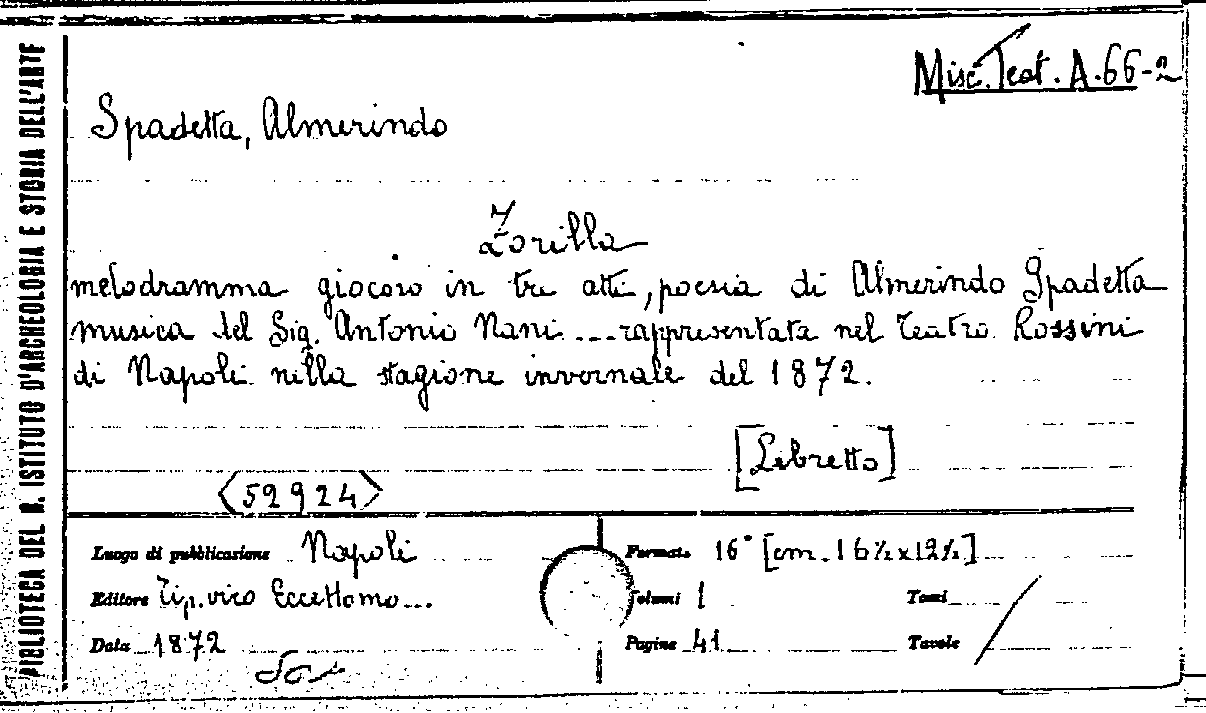 Misc. Teat. A. 66-2
Spadetta, Almerindo
Zorilla
melodramma giocoso in tre atti, poesia di Almerindo Spadetta
musica del Sig. Antonio Nani ... rappresentata nel Teatro Rossini
di Napoli nella stagione invernale del 1872.
[Libretto]
<52924>
Luogo di pubblicazione Napoli
Editore Tip. vico Eccettomo...
Data 1872
Formato 16° [cm. 16½x12½]
Volumi 1
Tomi
Pagine 41
Tavole
BIBLIOTECA DEL R. ISTITUTO D'ARCHEOLOGIA E STORIA DELL'ARTE